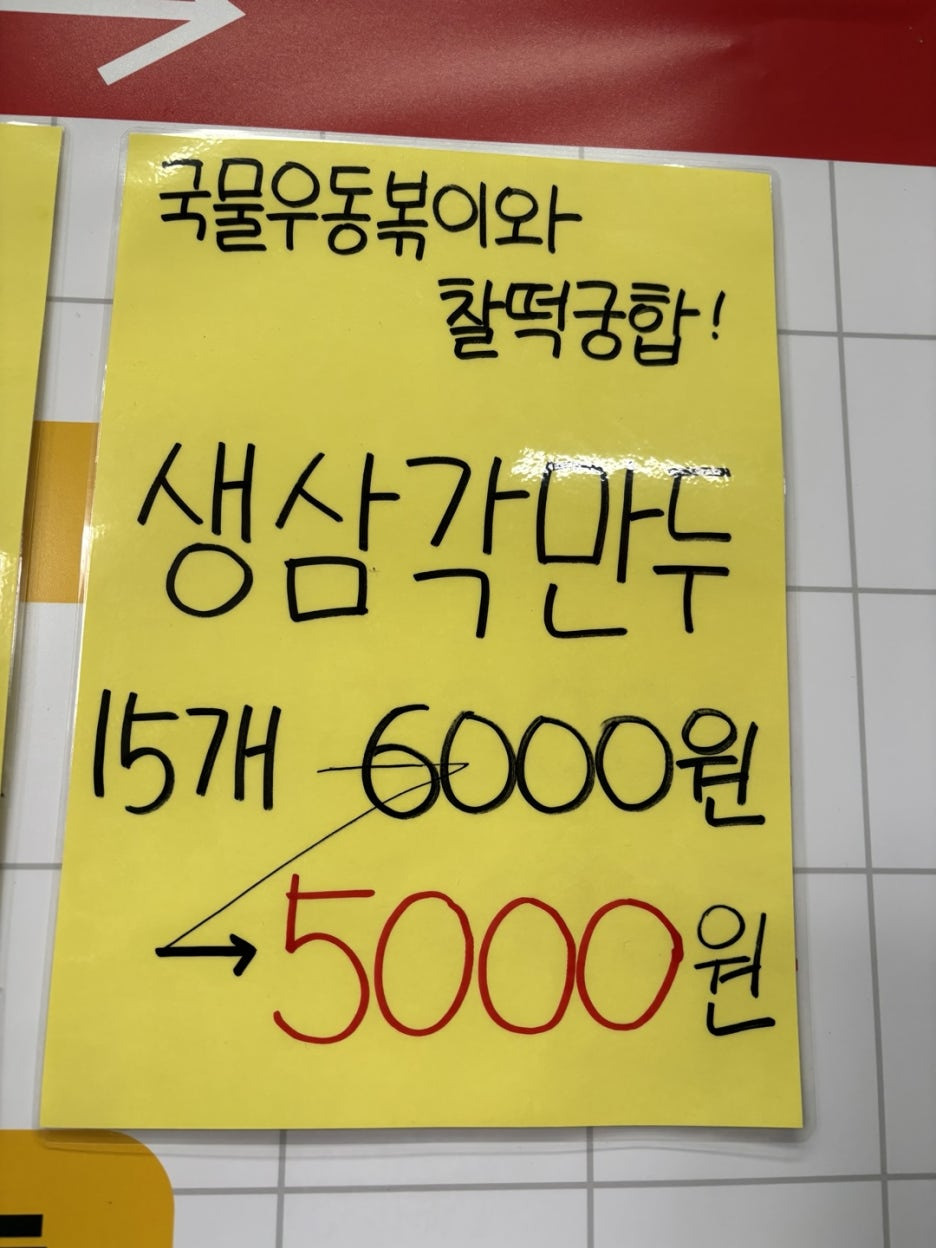 국물우동볶이와
찰떡궁합!
생삼각만두
15개 6000원
→ 5000원